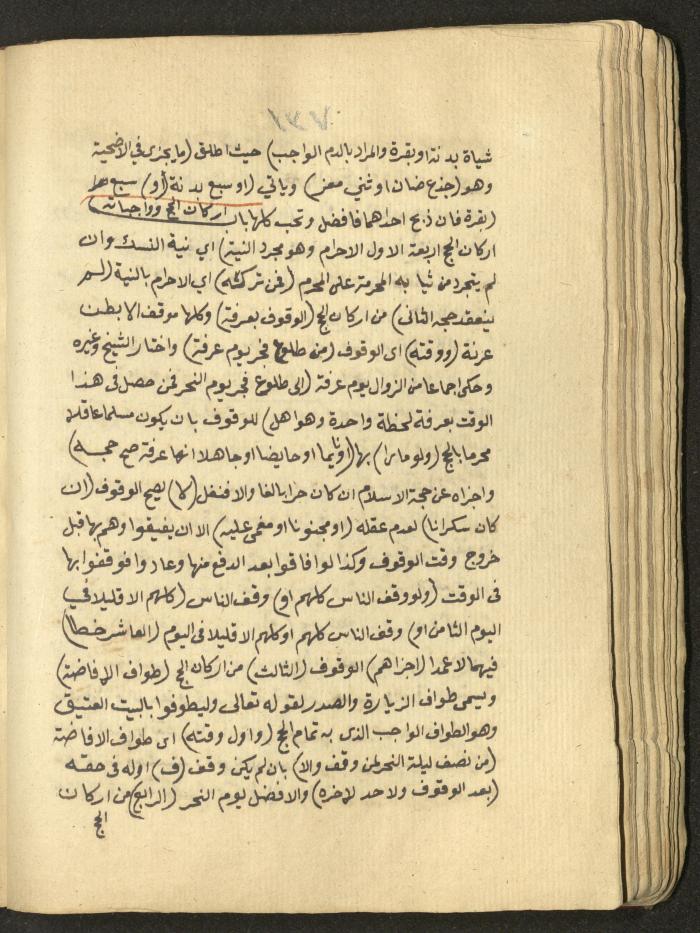 ١٣٧
شياة بدنة او بقرة والمراد بالدم الواجب) حيث اطلق (ما يجزى في الاضحية
وهو (جذع ضان او ثني معز) وياتي (او سبع بدنة (أو) سبع
(بقرة فان ذبح احداهما فافضل وتجب كلها باب اركان الحج وواجباته)
اركان الحج اربعة الاول الاحرام وهو مجرد النية) اي نية النسك وان
لم يتجرد من ثيابه المحرمة على المحرم (فمن تركه) اي الاحرام بالنية (لم
ينعقد حجه الثاني) من اركان الحج (الوقوف بعرفة) وكلها موقف الا بطن
عرنة (ووقته) اى الوقوف (من طلوع فجر يوم عرفة) واختار الشيخ وغيره
وحكى اجماعا من الزوال يوم عرفة (الى طلوع فجر يوم النحر فمن حصل فى هذا
الوقت بعرفة لحظة واحدة وهو اهل) للوقوف بان يكون مسلما عاقلا
محرما بالحج (ولو مارا) بها (او نايما او حايضا او جاهلا انها عرفة صح حجه)
واجزاه عن حجة الاسلام ان كان حرا بالغا والا فنفل (لا) يصح الوقوف (ان
كان سكرانا) لعدم عقله (او مجنونا او مغمى عليه) الا ان يفيقوا وهم بها قبل
خروج وقت الوقوف وكذا لو افاقوا بعد الدفع منها وعادوا فوقفوا بها
فى الوقت (ولو وقف الناس كلهم او) وقف الناس (كلهم الا قليلا في
اليوم الثامن او) وقف الناس كلهم او كلهم الا قليلا فى اليوم (العاشر خطا)
فيهما لا عمدا (اجزاهم) الوقوف (الثالث) من اركان الحج (طواف الافاضة)
ويسمى طواف الزيارة والصدر لقوله تعالى وليطوفوا بالبيت العتيق
وهو الطواف الواجب الذى به تمام الحج (واول وقته) اى طواف الافاضة
(من نصف ليلة النحر لمن وقف والا) بان لم يكن وقف (ف) اوله فى حقه
(بعد الوقوف ولا حد لاخره) والافضل يوم النحر (الرابع) من اركان
الحج